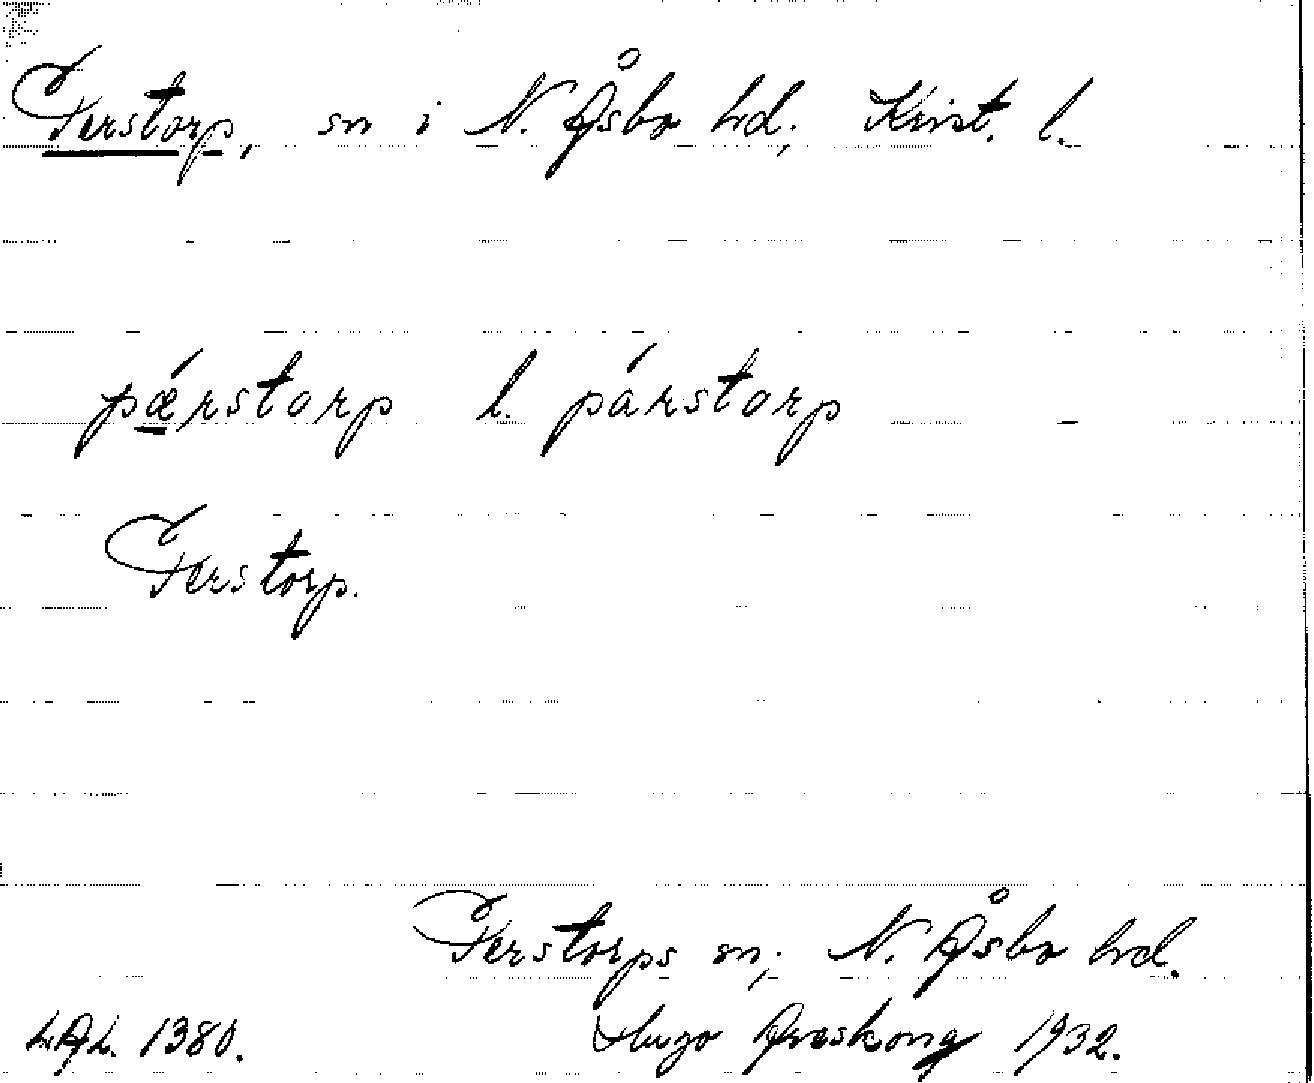 Perstorp, sn i N. Åsbo hd, Krist. l.
pǽrstorp l. párstorp
Perstorp.
Perstorps sn, N. Åsbo hd.
LAL. 1380. Hugo Areskoug 1932.